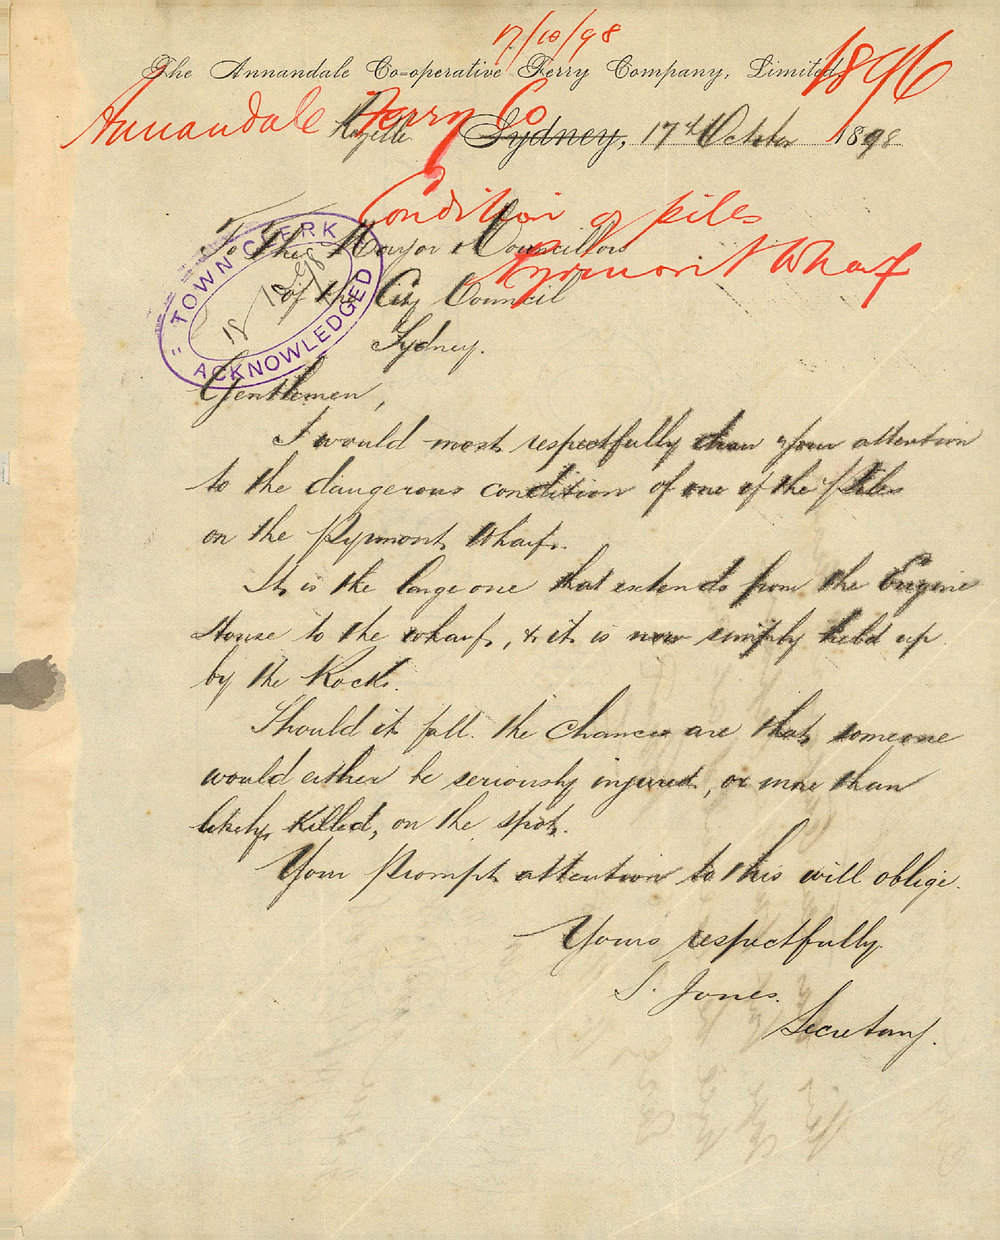 17/10/98
The Annandale Co-operative Ferry Company, Limited
1896
Annandale Ferry Co
Rozelle Sydney, 17th October 1898
Condition of piles
Pyrmont Wharf
To The Mayor & Councillors
of the City Council
Sydney.
"TOWN CLERK"
18 10 98
ACKNOWLEDGED
Gentlemen,
I would most respectfully draw your attention
to the dangerous condition of one of the Piles
on the Pyrmont Wharf.
It is the large one that extends from the Engine
House to the wharf, & it is now simply held up
by the Rocks.
Should it fall. the chances are that someone
would either be seriously injured, or more than
likely killed, on the spot.
Your Prompt attention to this will oblige.
Yours respectfully
S. Jones.
Secretary.